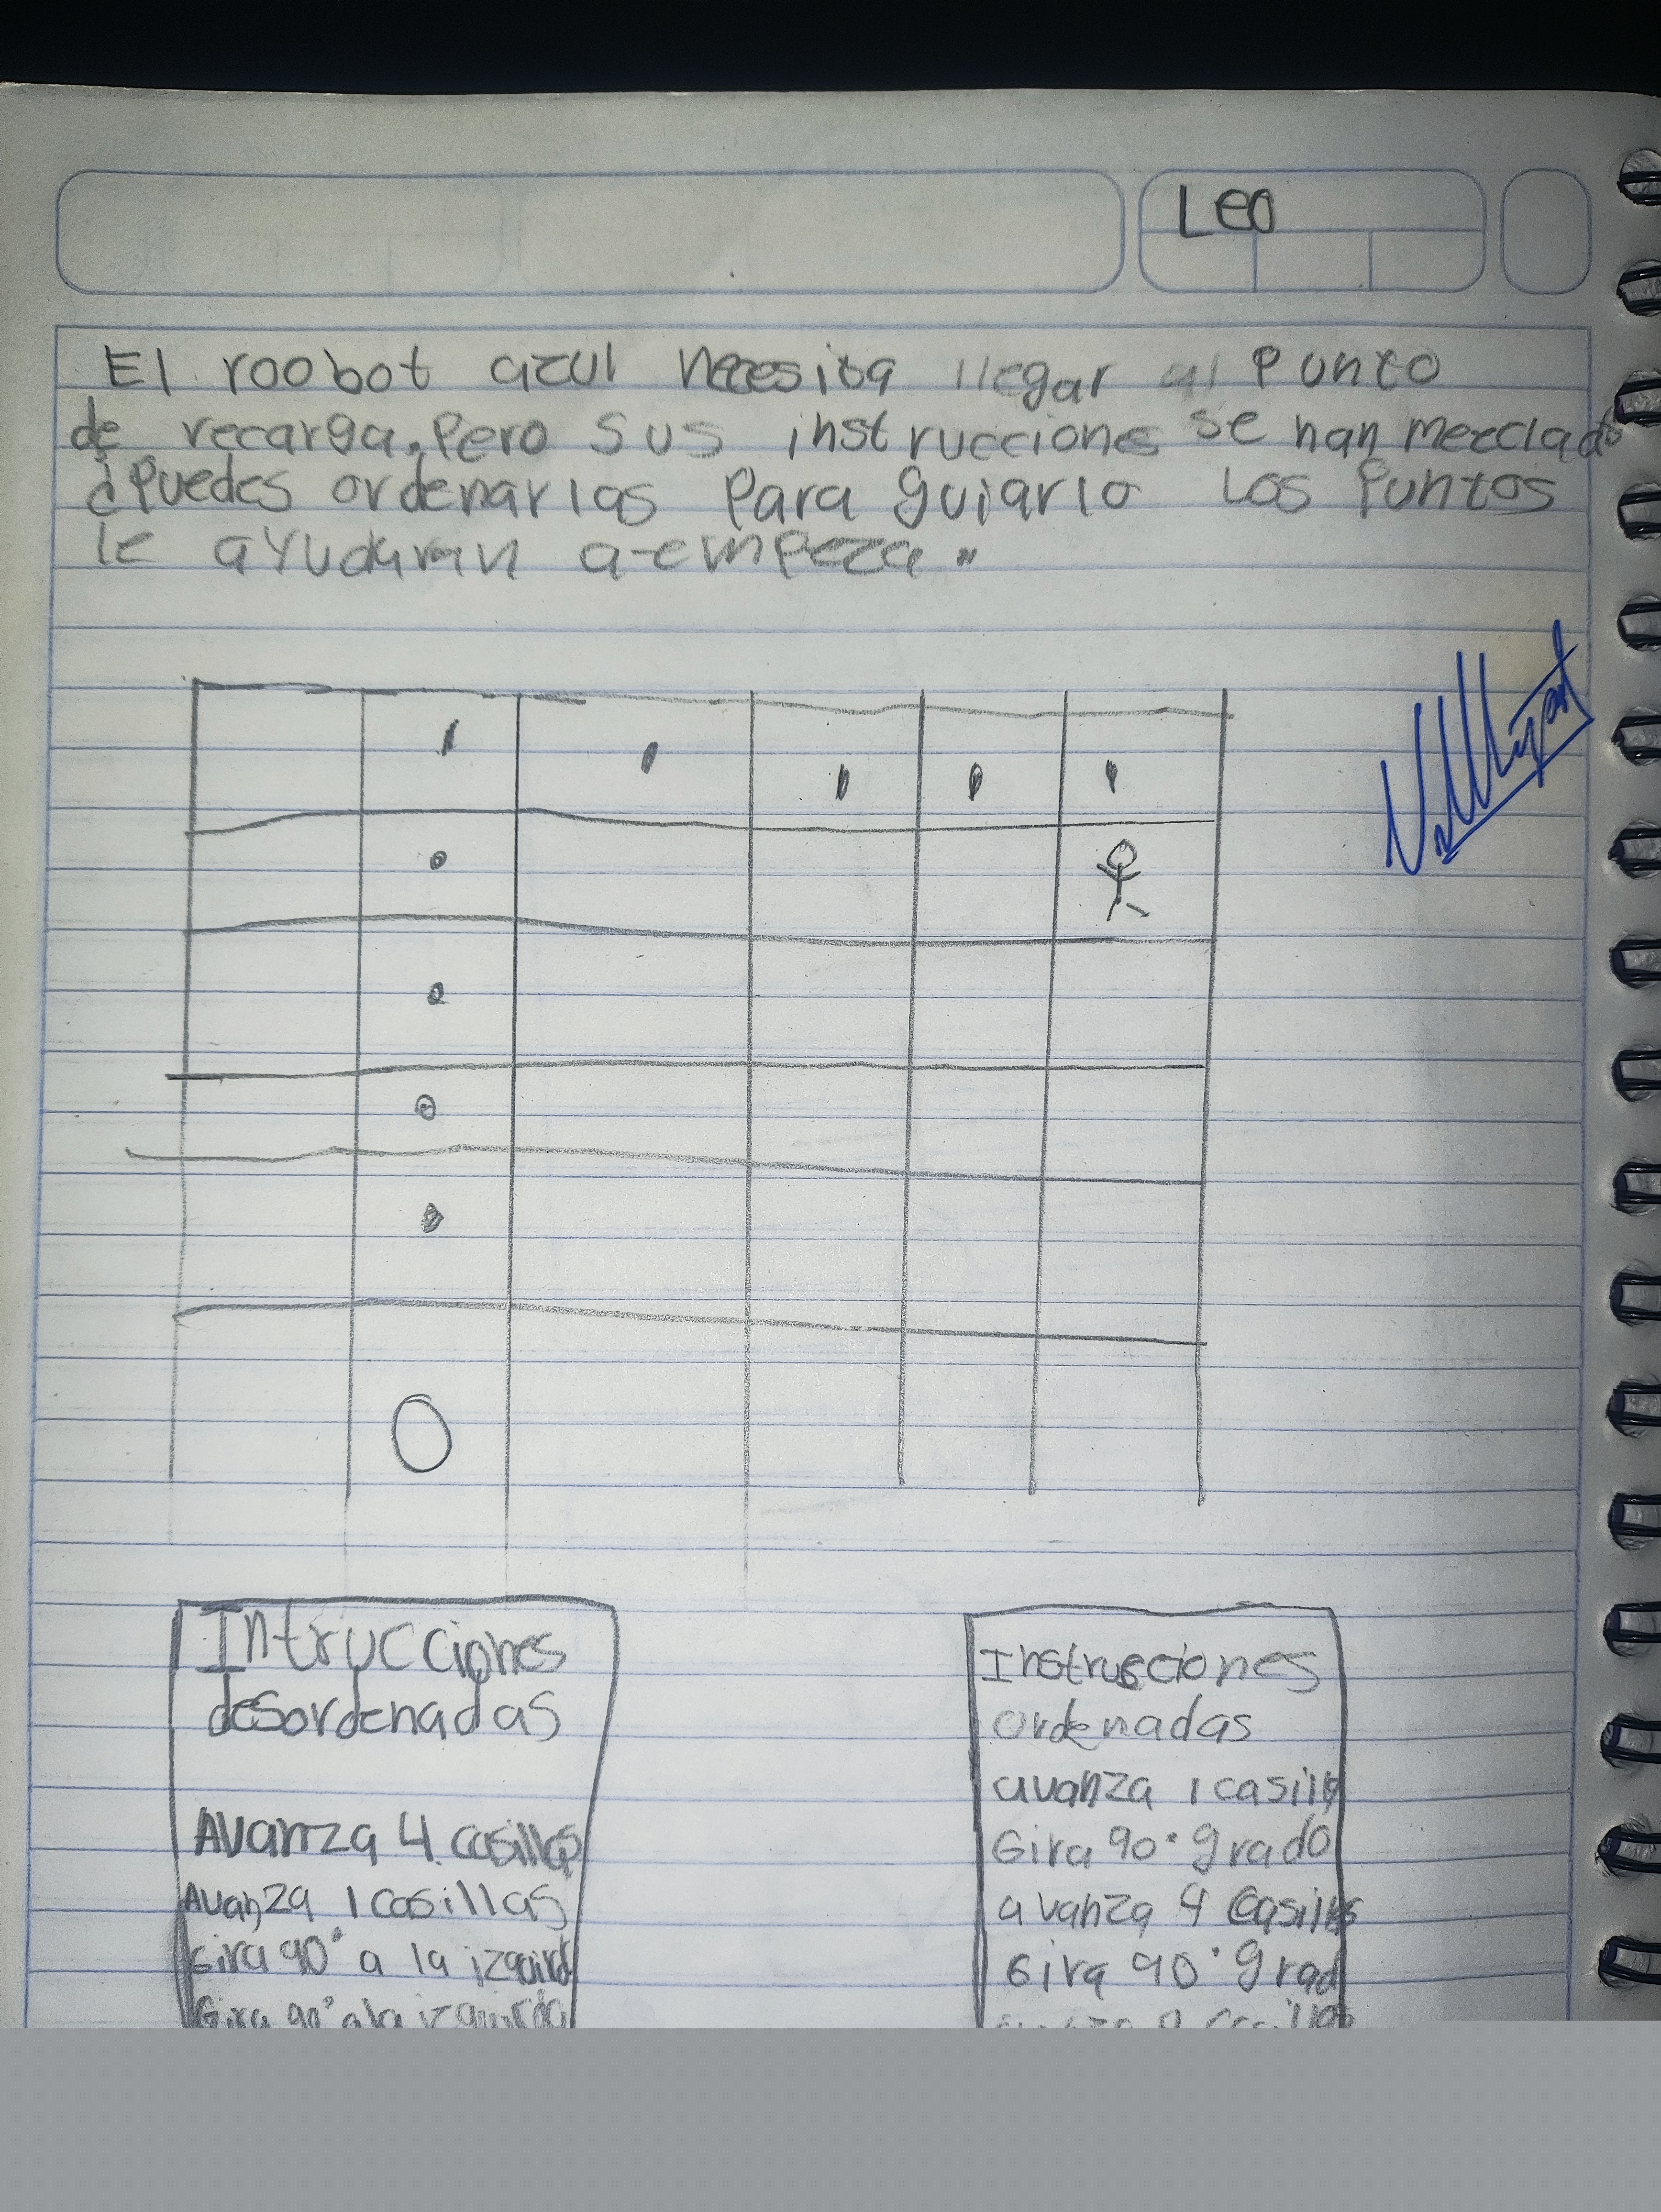 Leo
El roobot azul necesita llegar al punto
de recarga, Pero sus instrucciones se han mezclado
¿Puedes ordenarlas Para guiarlo Los Puntos
le ayudaran a empeza"
Intrucciones
desordenadas
Avanza 4 casillas
Avanza 1 casillas
Gira 90° a la izquird
Gira 90° a la izquirda
Instrucciones
ordenadas
avanza 1 casilla
Gira 90° grado
avanza 4 casillas
Gira 90° grad